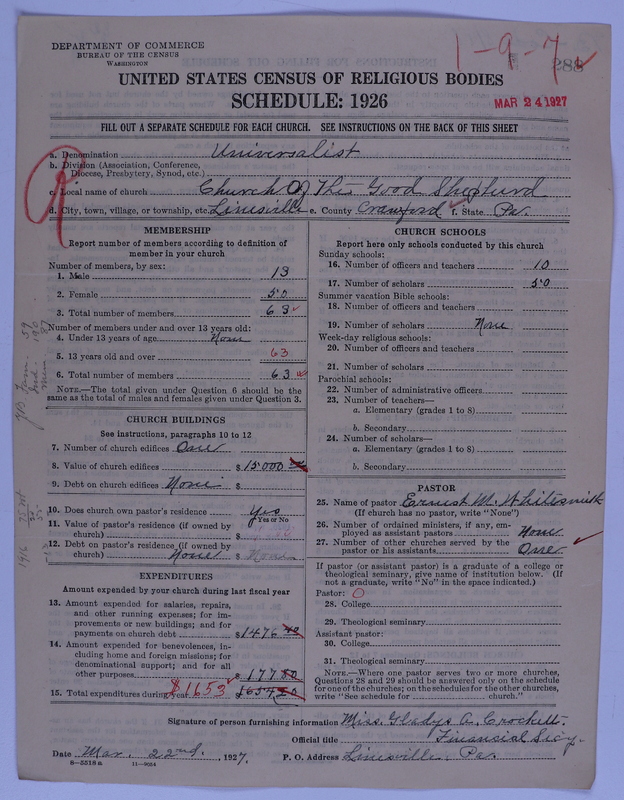 DEPARTMENT OF COMMERCE
BUREAU OF THE CENSUS
WASHINGTON
1-9-7
288
UNITED STATES CENSUS OF RELIGIOUS BODIES
SCHEDULE: 1926
MAR 24 1927
FILL OUT A SEPARATE SCHEDULE FOR EACH CHURCH. SEE INSTRUCTIONS ON THE BACK OF THIS SHEET
a. Denomination Universalist
b. Division (Association, Conference, Diocese, Presbytery, Synod, etc.)
c. Local name of church Church Of The Good Shepherd
d. City, town, village, or township, etc. Linesville e. County Crawford f. State Pa.
MEMBERSHIP
Report number of members according to definition of member in your church
Number of members, by sex:
1. Male 13
2. Female 50
3. Total number of members 63
Number of members under and over 13 years old:
4. Under 13 years of age None
5. 13 years old and over 63
6. Total number of members 63
NOTE.—The total given under Question 6 should be the same as the total of males and females given under Question 3.
CHURCH BUILDINGS
See instructions, paragraphs 10 to 12
7. Number of church edifices One
8. Value of church edifices $15000
9. Debt on church edifices None $
10. Does church own pastor's residence Yes
Yes or No
11. Value of pastor's residence (if owned by church) $
12. Debt on pastor's residence (if owned by church) None $ None
EXPENDITURES
Amount expended by your church during last fiscal year
13. Amount expended for salaries, repairs, and other running expenses; for improvements or new buildings; and for payments on church debt $1476
14. Amount expended for benevolences, including home and foreign missions; for denominational support; and for all other purposes $ 177
15. Total expenditures during year $1653
CHURCH SCHOOLS
Report here only schools conducted by this church
Sunday schools:
16. Number of officers and teachers 10
17. Number of scholars 50
Summer vacation Bible schools:
18. Number of officers and teachers
19. Number of scholars None
Week-day religious schools:
20. Number of officers and teachers
21. Number of scholars
Parochial schools:
22. Number of administrative officers
23. Number of teachers—
a. Elementary (grades 1 to 8)
b. Secondary
24. Number of scholars—
a. Elementary (grades 1 to 8)
b. Secondary
PASTOR
25. Name of pastor Ernest M. Whitesmith
(If church has no pastor, write "None")
26. Number of ordained ministers, if any, employed as assistant pastors None
27. Number of other churches served by the pastor or his assistants One
If pastor (or assistant pastor) is a graduate of a college or theological seminary, give name of institution below. (If not a graduate, write "No" in the space indicated.)
Pastor: O
28. College
29. Theological seminary
Assistant pastor:
30. College
31. Theological seminary
NOTE.—Where one pastor serves two or more churches, Questions 28 and 29 should be answered only on the schedule for one of the churches; on the schedules for the other churches, write "See schedule for church."
Signature of person furnishing information Miss. Gladys A. Crockett.
Official title Financial Secy.
Date Mar. 22nd, 1927. P. O. Address Linesville, Pa.
8—5518a 11—9054